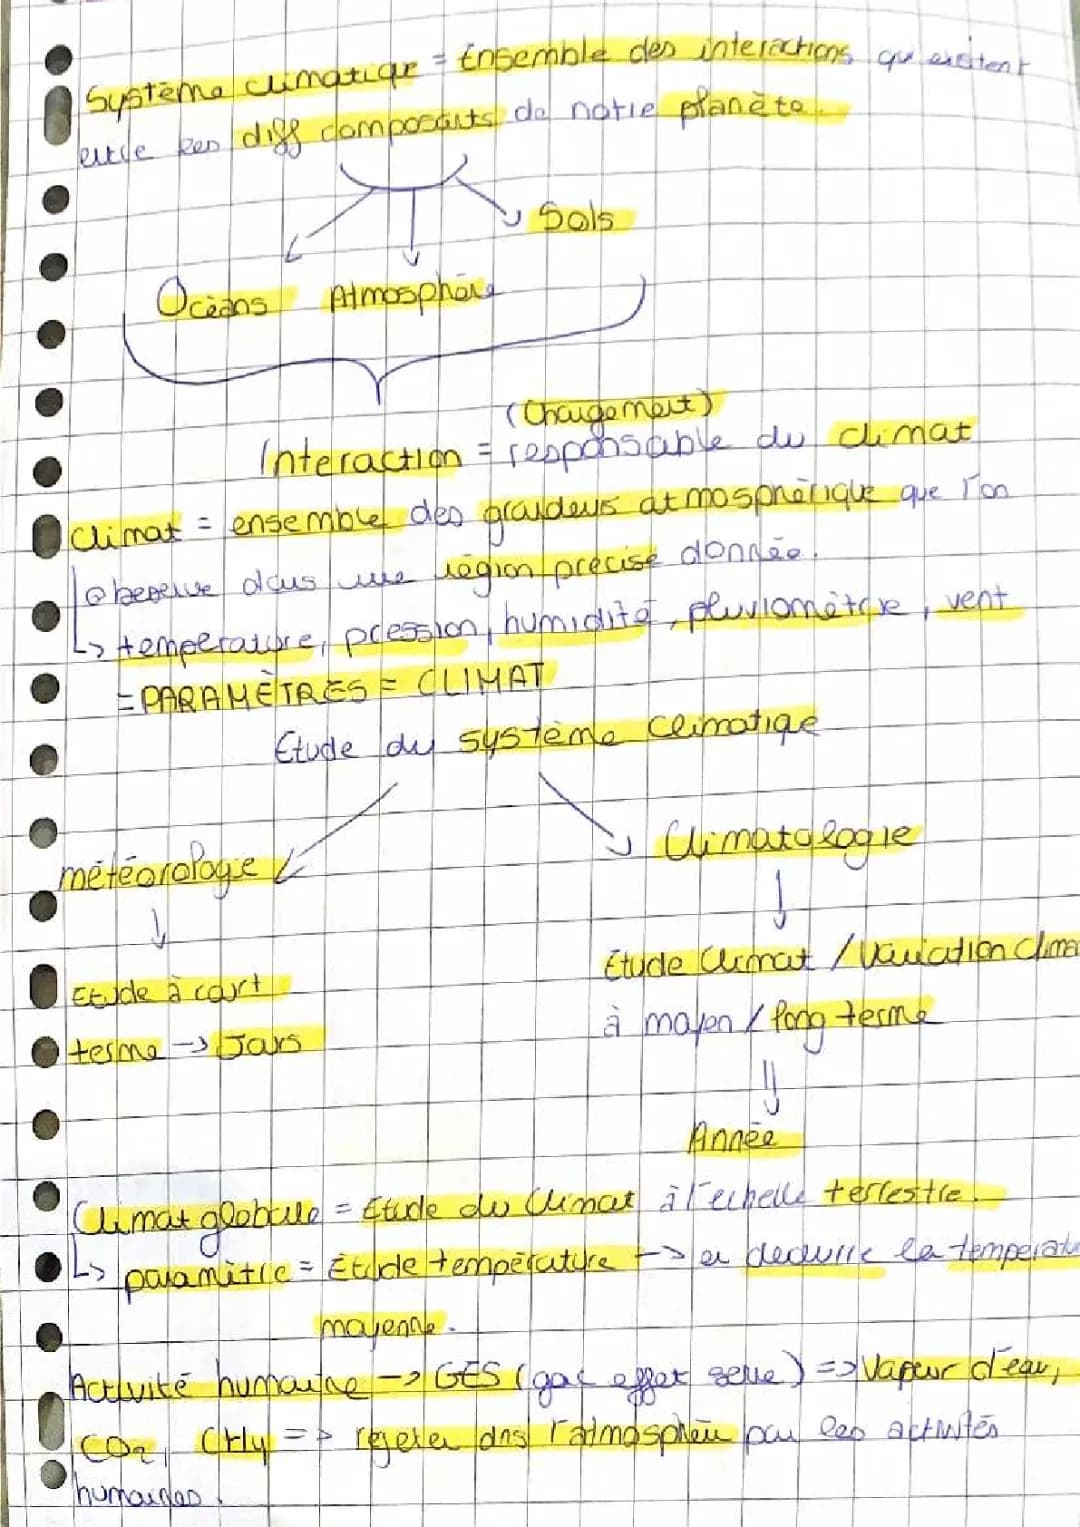 Système climatique = Ensemble des interactions qui existent
entre les diff composants de notre planète.
Sols
Océans Atmosphère
(Changement)
Interaction = responsable du climat
Climat = ensemble des grandeurs atmosphérique que l'on
observe dans une région précise donnée.
↳ température, pression, humidité, pluviomètrie, vent
= PARAMÈTRES = CLIMAT
Etude du système climatique
météorologie
Climatologie
Etude Climat / Variation clima
Etude à court
à moyen / long terme
terme → Jours
Année
Climat globale = Etude du Climat à l'echelle terrestre.
↳ paramètre = Etude température → en deduire la temperatu
moyenne.
Activité humaine → GES (gaz effet serre) => Vapeur d'eau,
CO2, CH4 => rejeter dns l'atmosphère par les activités
humaines.